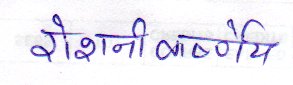 रोशनी वार्ष्णेय